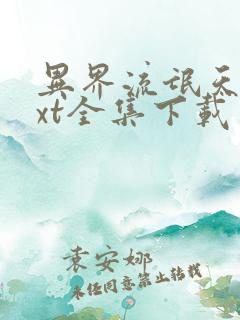 異界流氓天
xt全集下載
袁安娜
未经同意禁止转载